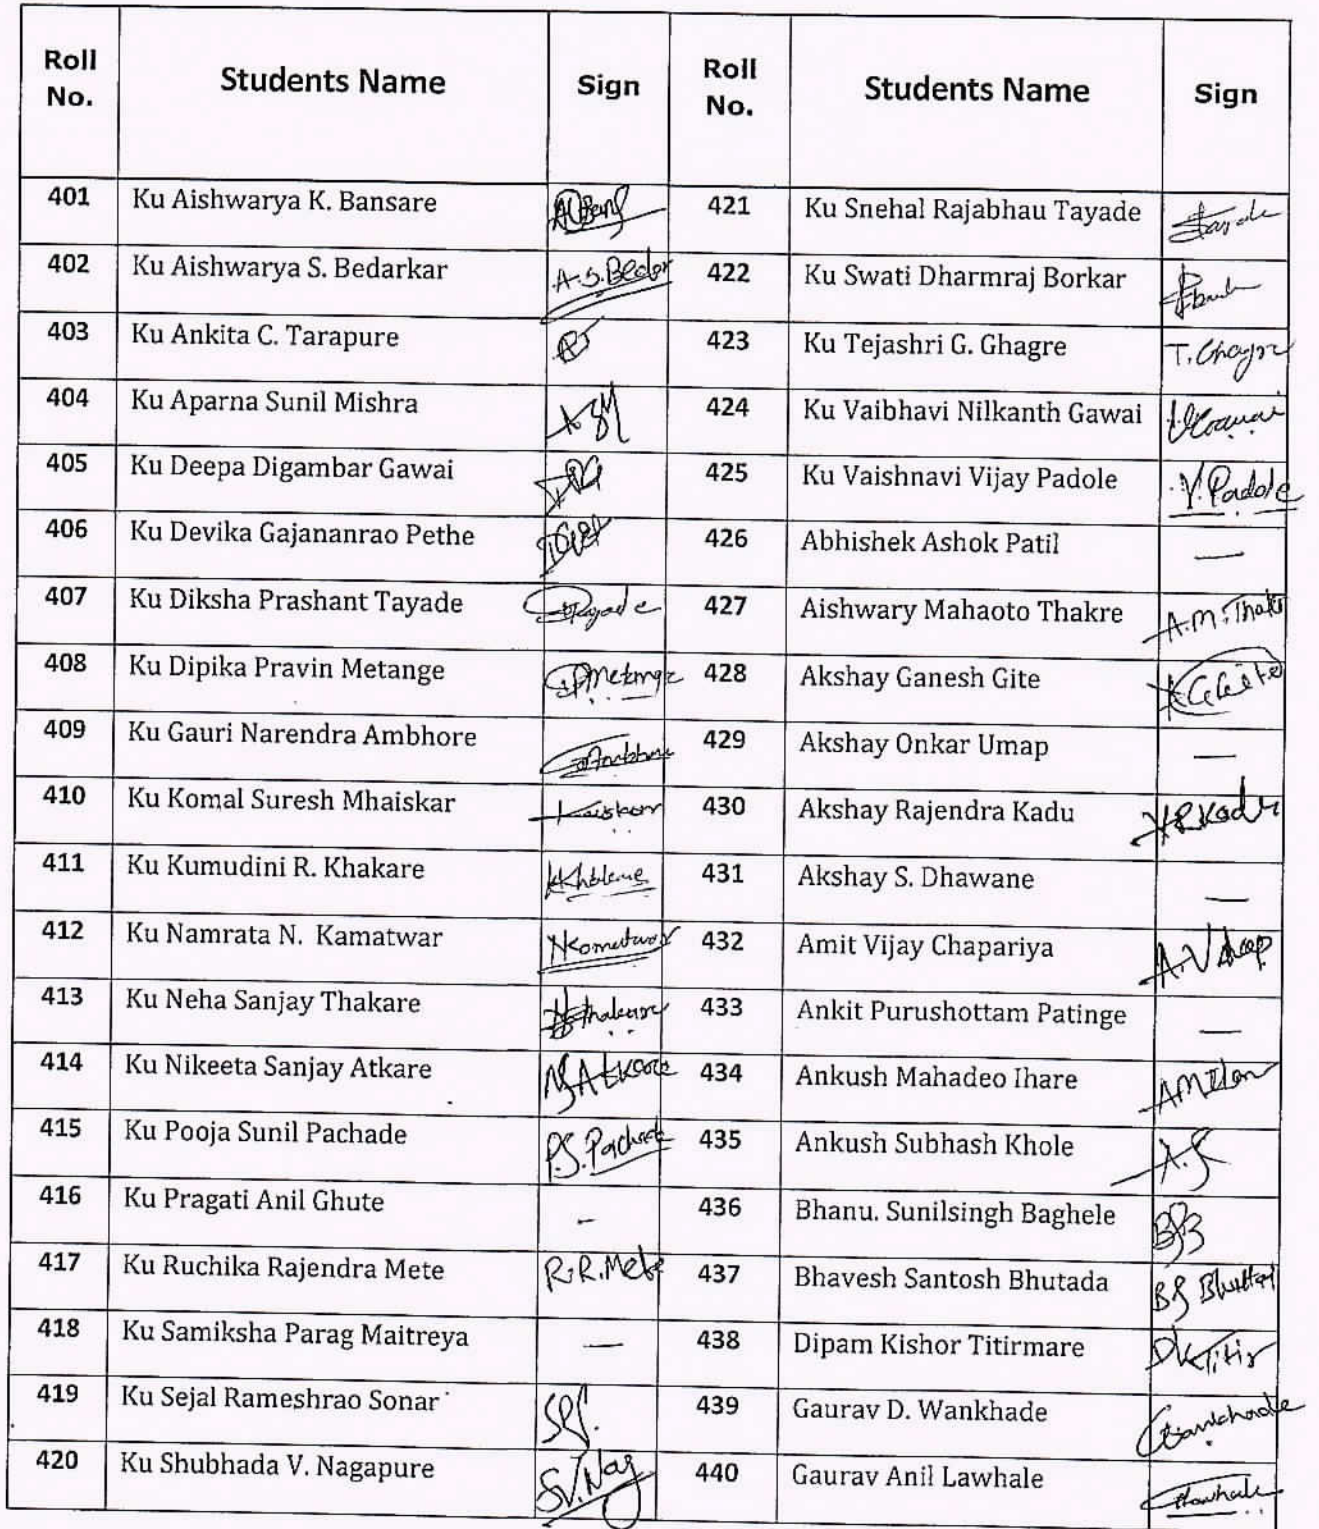 Roll No. Students Name Sign Roll No. Students Name Sign
401 Ku Aishwarya K. Bansare 421 Ku Snehal Rajabhau Tayade
402 Ku Aishwarya S. Bedarkar A.S.Bedar 422 Ku Swati Dharmraj Borkar
403 Ku Ankita C. Tarapure 423 Ku Tejashri G. Ghagre T. Ghagre
404 Ku Aparna Sunil Mishra 424 Ku Vaibhavi Nilkanth Gawai
405 Ku Deepa Digambar Gawai 425 Ku Vaishnavi Vijay Padole V. Padole
406 Ku Devika Gajananrao Pethe 426 Abhishek Ashok Patil —
407 Ku Diksha Prashant Tayade 427 Aishwary Mahaoto Thakre A.M.Thakr
408 Ku Dipika Pravin Metange 428 Akshay Ganesh Gite
409 Ku Gauri Narendra Ambhore 429 Akshay Onkar Umap —
410 Ku Komal Suresh Mhaiskar 430 Akshay Rajendra Kadu ARKadu
411 Ku Kumudini R. Khakare 431 Akshay S. Dhawane —
412 Ku Namrata N. Kamatwar NKamatwar 432 Amit Vijay Chapariya
413 Ku Neha Sanjay Thakare 433 Ankit Purushottam Patinge —
414 Ku Nikeeta Sanjay Atkare NSAtkare 434 Ankush Mahadeo Ihare
415 Ku Pooja Sunil Pachade P.S.Pachade 435 Ankush Subhash Khole A.S
416 Ku Pragati Anil Ghute – 436 Bhanu. Sunilsingh Baghele BSB
417 Ku Ruchika Rajendra Mete R.R.Mete 437 Bhavesh Santosh Bhutada
418 Ku Samiksha Parag Maitreya — 438 Dipam Kishor Titirmare DKTitir
419 Ku Sejal Rameshrao Sonar 439 Gaurav D. Wankhade
420 Ku Shubhada V. Nagapure S.V.Nag 440 Gaurav Anil Lawhale